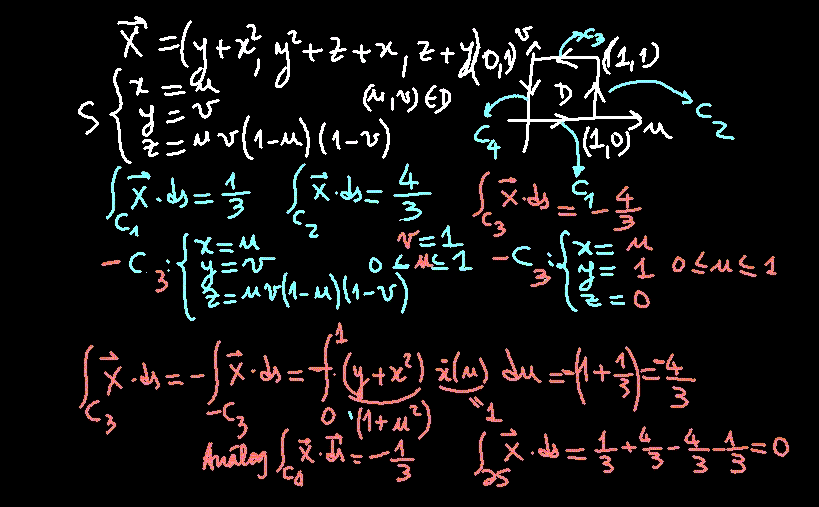 $\vec{X} = (y+x^2, y^2+z+x, z+y)$
$S \begin{cases} x=u \\ y=v \\ z=uv(1-u)(1-v) \end{cases}$ $(u,v) \in D$
(0,1) v C_3 (1,1)
D C_2
C_4 (1,0) u
C_1
$\int_{C_1} \vec{X} \cdot ds = \frac{1}{3}$ $\int_{C_2} \vec{X} \cdot ds = \frac{4}{3}$ $\int_{C_3} \vec{X} \cdot ds = -\frac{4}{3}$
$-C_3: \begin{cases} x=u \\ y=v \\ z=uv(1-u)(1-v) \end{cases}$ $v=1$ $0 \leq u \leq 1$ $-C_3: \begin{cases} x=u \\ y=1 \\ z=0 \end{cases}$ $0 \leq u \leq 1$
$\int_{C_3} \vec{X} \cdot ds = -\int_{-C_3} \vec{X} \cdot ds = -\int_0^1 \underbrace{(y+x^2)}_{(1+u^2)} \underbrace{\dot{x}(u)}_{=1} du = -(1+\frac{1}{3}) = -\frac{4}{3}$
Análog $\int_{C_4} \vec{X} \cdot \vec{ds} = -\frac{1}{3}$ $\int_{\partial S} \vec{X} \cdot ds = \frac{1}{3} + \frac{4}{3} - \frac{4}{3} - \frac{1}{3} = 0$